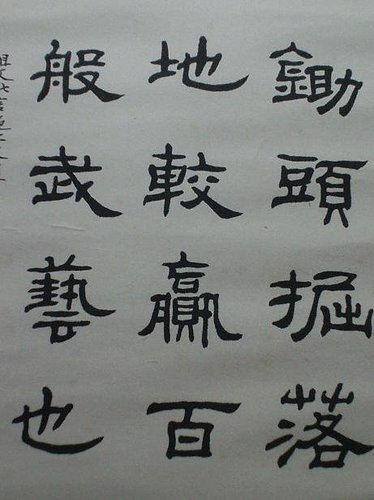 鋤頭掘落
地較贏百
般武藝也